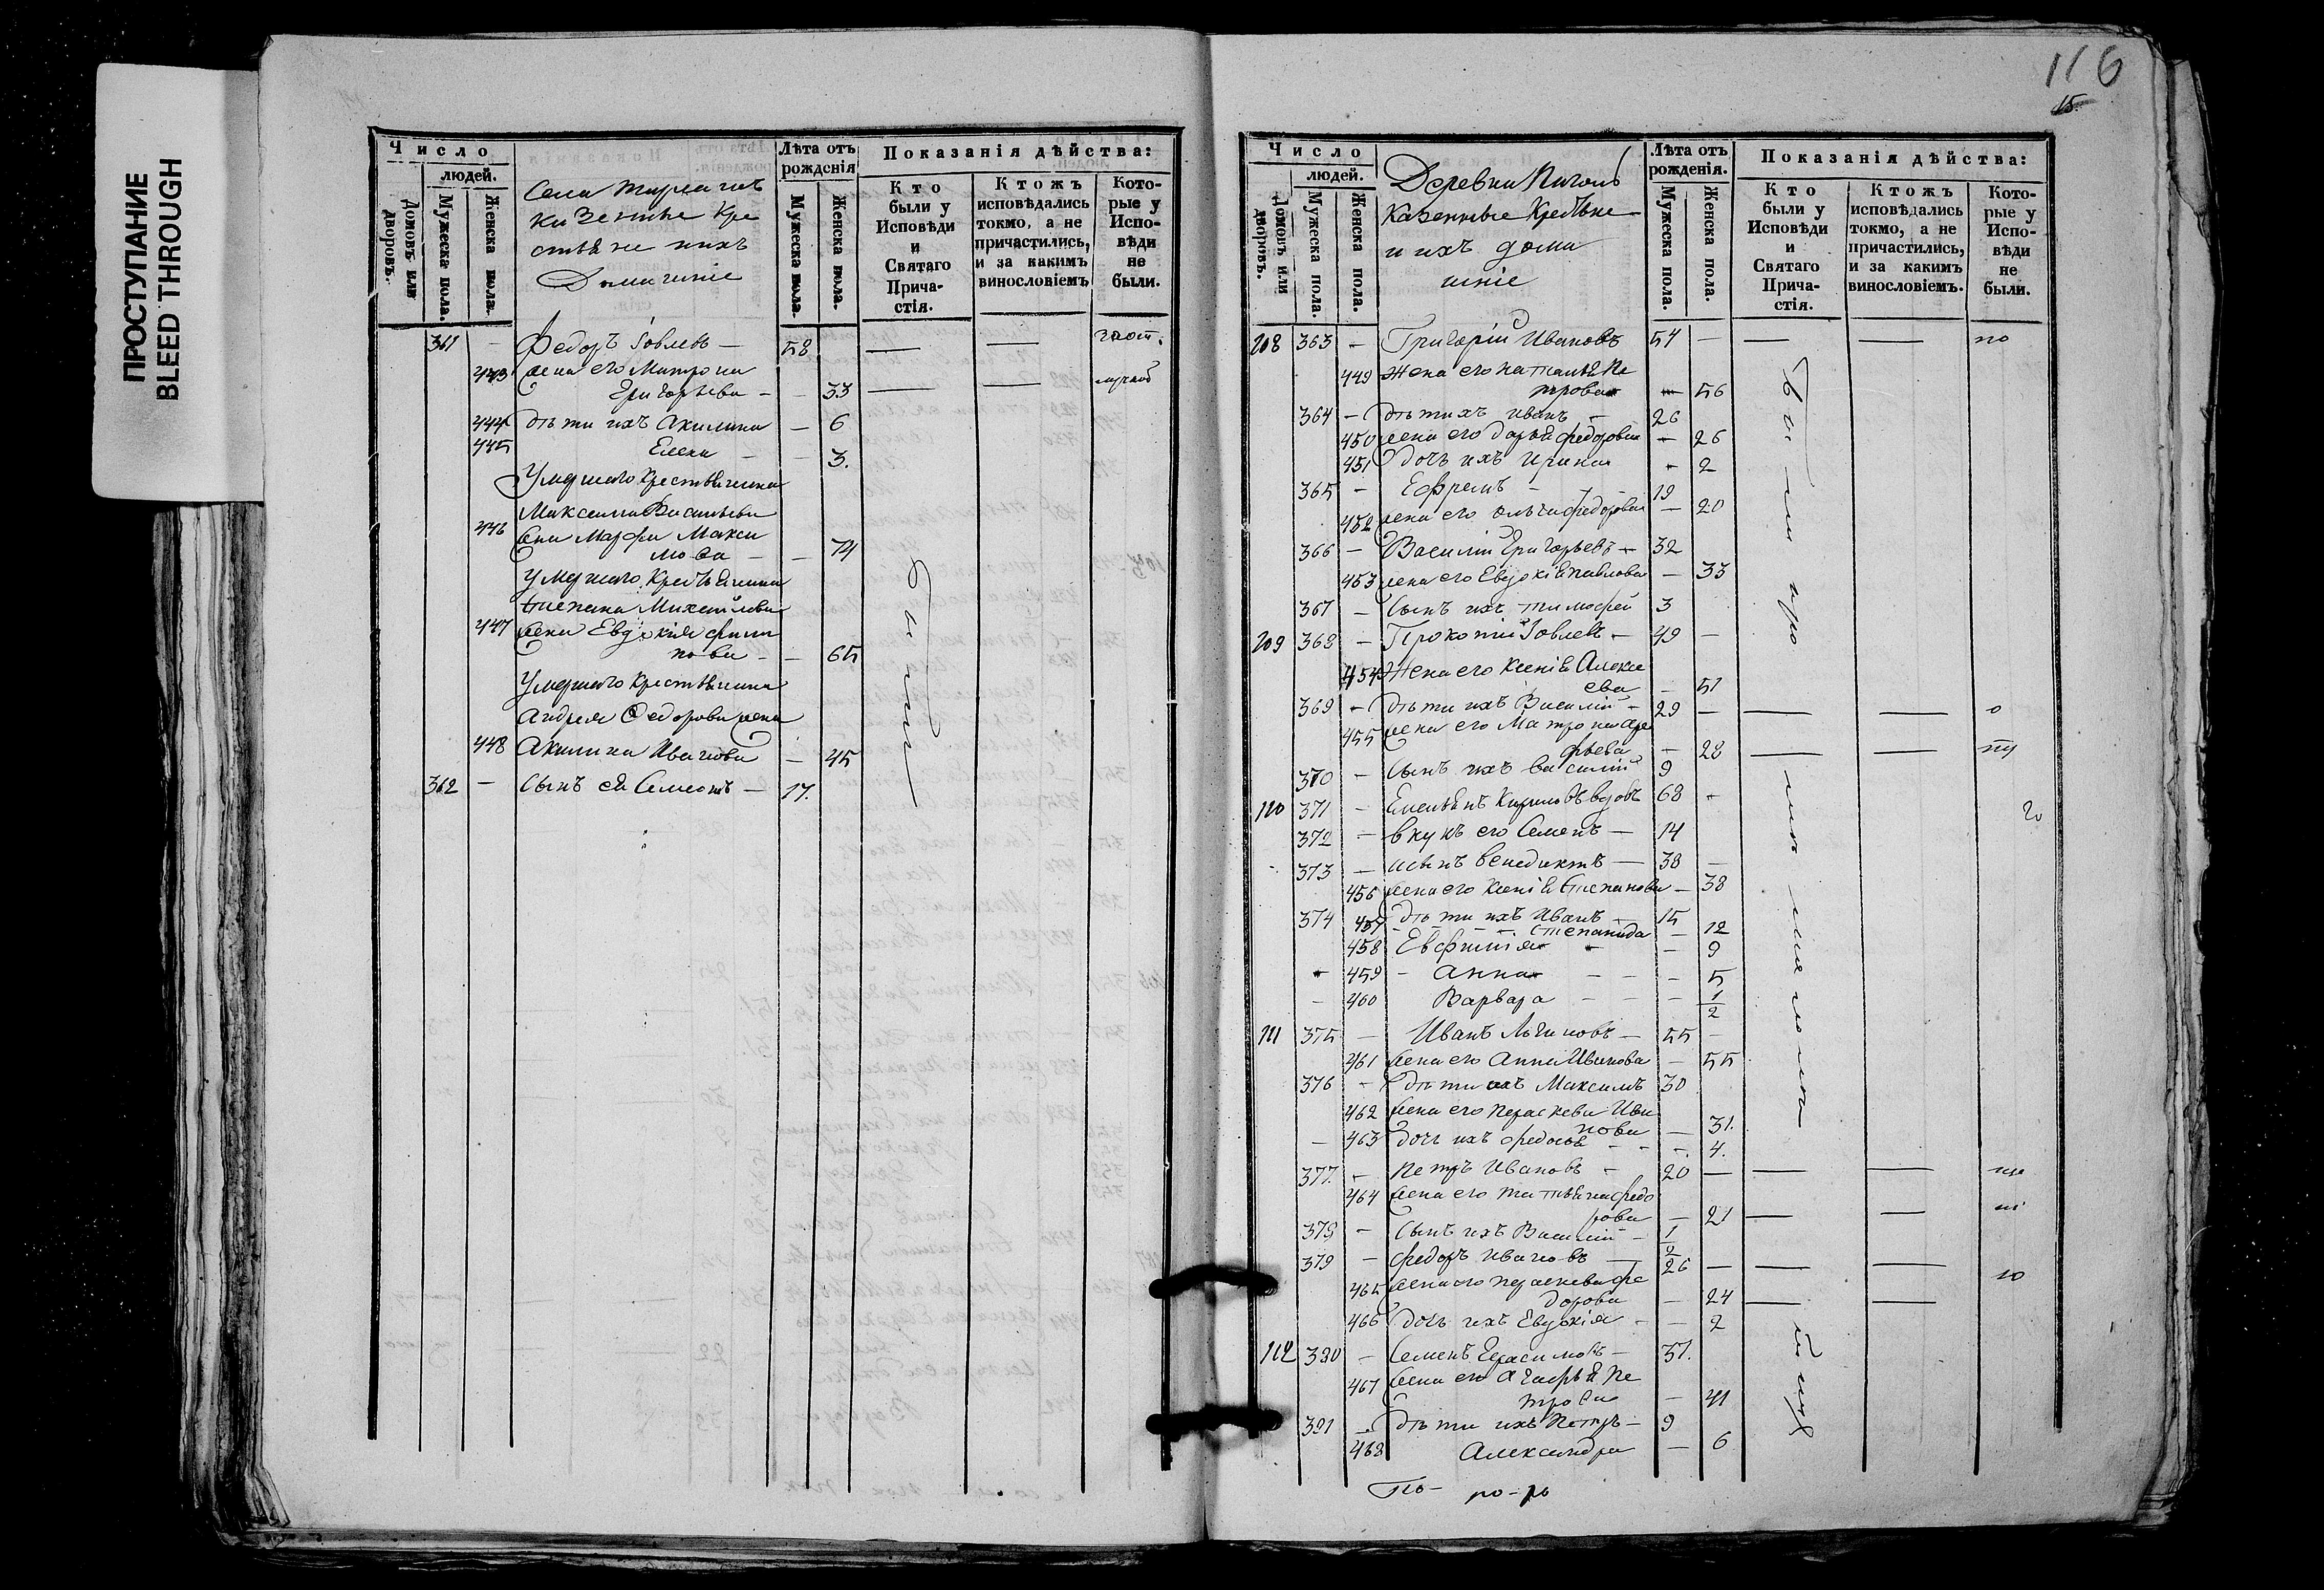 ПРОСТУПАНИЕ
BLEED THROUGH
Число
людей.
Домовъ или дворовъ.
Мужеска пола.
Женска пола.
Лѣта отъ рожденія
Мужеска пола.
Женска пола.
Показанія дѣйства:
Кто были у Исповѣди и Святаго Прича-стія.
Ктожъ исповѣдались токмо, а не причастились, и за какимъ винословіемъ
Кото-рые у Испо-вѣди не были.
Села
казенные Кре
стьяне ихъ
Домашніе
361 — Федоръ Іовлевъ — 58
443 жена его Матрона
Григорьева — — 33
444 дѣти ихъ Акилина — 6
445 Елена — — 3.
Умершаго крестьянина
Максима Васильева
446 жена Марфа Макси
мова — — 74
Умершаго Крестьянина
Степана Михайлова
447 жена Евдокія Фили
пова — — 65
Умершаго крестьянина
Андрея Федорова жена
448 Акилина Иванова — 45
362 — Сынъ ея Симеонъ — 17.
были
116
15.
Число
людей.
Домовъ или дворовъ.
Мужеска пола.
Женска пола.
Деревни
Казенные Крестьяне
и ихъ дома
шніе
Лѣта отъ рожденія.
Мужеска пола.
Женска пола.
Показанія дѣйства:
Кто были у Исповѣди и Святаго Прича-стія.
Ктожъ исповѣдались токмо, а не причастились, и за какимъ винословіемъ.
Кото-рые у Испо-вѣди не были.
108 363 — Григорій Ивановъ 54 — по
449 Жена его Наталья Пе
трова — 56
364 — дѣти ихъ Иванъ — 26
450 жена его Дарья Федорова — 26
451 дочь ихъ Ирина — 2
365 — Ефремъ — 19
452 жена его Ольга Федорова — 20
366 — Василій Григорьевъ — 32
453 жена его Евдокія Павлова — 33
367 — Сынъ ихъ Тимофей 3
109 368 — Прокопій Іовлевъ — 49 —
454 Жена его Ксенія Алексе
ева — 51
369 — дѣти ихъ Василій — 29 —
455 жена его Матрона
фьева — 28
370 — Сынъ ихъ Василій 9
110 371 — Емельянъ Кириловъ вдовъ 68 —
372 — внукъ его Семенъ — 14
373 — сынъ Венедиктъ — 38 —
456 жена его Ксенія Степанова — 38
374 дѣти ихъ Иванъ — 15
457 Степанида — 12
458 Евфимія — 9
459 — Анна — — — 5
460 Варвара — — — 1/2
111 375 — Иванъ Логиновъ — 55 —
461 жена его Анна Иванова — 55
376 — дѣти ихъ Максимъ 30
462 жена его Параскева Ива
нова — 31.
463 дочь ихъ Федосья — — 4.
377. — Петръ Ивановъ — 20 —
464 жена его Татьяна Федо
рова — 21
378 — Сынъ ихъ Василій — 1/2
379 — Федоръ Ивановъ — 26 —
465 жена его Параскева Фе
дорова — 24
466 дочь ихъ Евдокія — — 2
112 380 — Семенъ Герасимовъ — 37.
467 жена его Агафья Пе
трова — 41
381 — дѣти ихъ Петръ — 9
468 Александра — 6